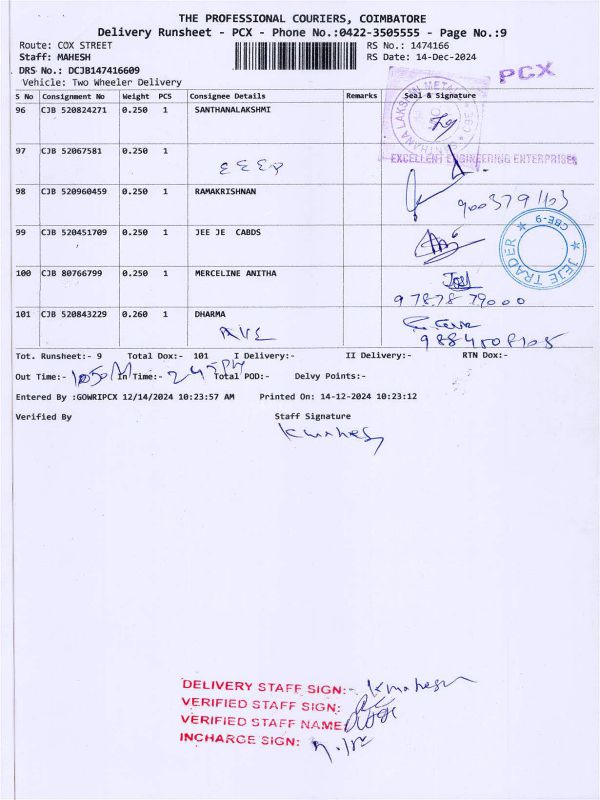 THE PROFESSIONAL COURIERS, COIMBATORE
Delivery Runsheet - PCX - Phone No.:0422-3505555 - Page No.:9
Route: COX STREET RS No.: 1474166
Staff: MAHESH RS Date: 14-Dec-2024
DRS No.: DCJB147416609
PCX
Vehicle: Two Wheeler Delivery
S No Consignment No Weight PCS Consignee Details Remarks Seal & Signature
96 CJB 520824271 0.250 1 SANTHANALAKSHMI
97 CJB 52067581 0.250 1
EXCELLENT ENGINEERING ENTERPRISES
98 CJB 520960459 0.250 1 RAMAKRISHNAN
99 CJB 520451709 0.250 1 JEE JE CABDS
JEJE TRADER CBE-9
100 CJB 80766799 0.250 1 MERCELINE ANITHA
97878 79000
101 CJB 520843229 0.260 1 DHARMA
Tot. Runsheet:- 9 Total Dox:- 101 I Delivery:- II Delivery:- RTN Dox:-
Out Time:- In Time:- Total POD:- Delvy Points:-
Entered By :GOWRIPCX 12/14/2024 10:23:57 AM Printed On: 14-12-2024 10:23:12
Verified By Staff Signature
DELIVERY STAFF SIGN:- kmahesh
VERIFIED STAFF SIGN:
VERIFIED STAFF NAME
INCHARGE SIGN: